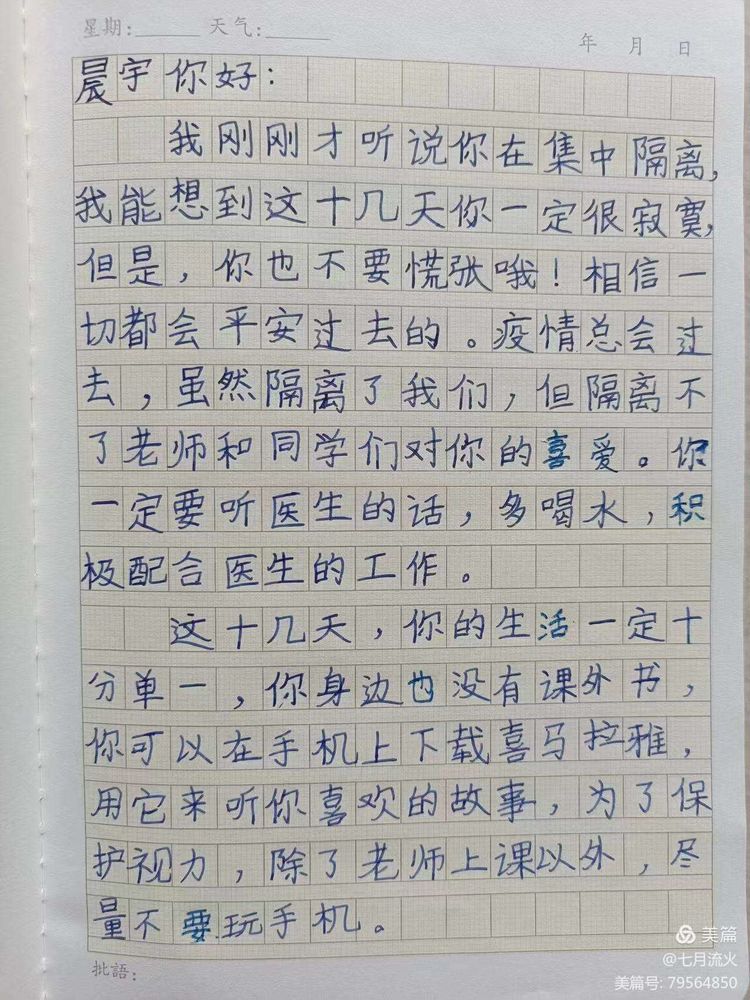 星期:______ 天气:______
年 月 日
晨宇你好：
我刚刚才听说你在集中隔离，
我能想到这十几天你一定很寂寞，
但是，你也不要慌张哦！相信一
切都会平安过去的。疫情总会过
去，虽然隔离了我们，但隔离不
了老师和同学们对你的喜爱。你
一定要听医生的话，多喝水，积
极配合医生的工作。
这十几天，你的生活一定十
分单一，你身边也没有课外书，
你可以在手机上下载喜马拉雅，
用它来听你喜欢的故事，为了保
护视力，除了老师上课以外，尽
量不要玩手机。
批語:
美篇
@七月流火
美篇号: 79564850